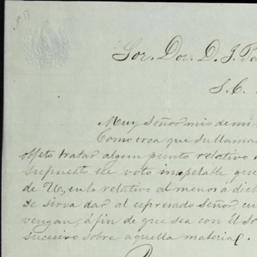 Sor. Dor. D. J.
S. C.
Muy Señor mio de mi
Como crea que su llama
objeto tratar algun punto relativo
supuesto de voto inapelable que
de U, en lo relativo al menor á dich
se sirva dar al espresado señor, cu
vengan, á fin de que sea con él so
sucesivo sobre aquella material.